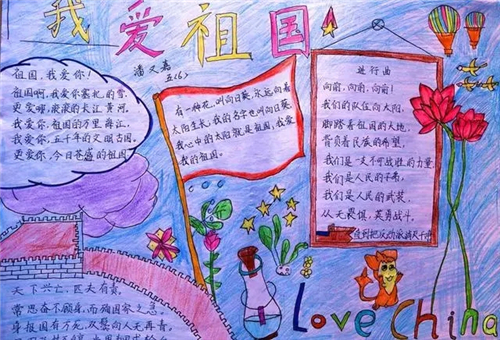 我爱祖国
潘又嘉
五(6)
祖国,我爱你!
祖国啊,我爱你
更爱你
我爱你,祖国的万里
我爱你,五千年的文明古国。
更爱你,今日苍盛的祖国
有一种花,叫向日葵,永远向着
太阳生长,我的名字也叫向日葵,
我心中的太阳就是祖国,我爱
我的祖国。
进行曲
向前,向前,向前!
我们的队伍向太阳,
脚踏着祖国的大地,
背负着民族的希望,
我们是一支不可战胜的力量,
我们是人民的子弟,
我们是人民的武装,
从无畏惧,英勇战斗,
天下兴亡,匹夫有责,
常思奋不顾身,而殉国家之急。
Love China